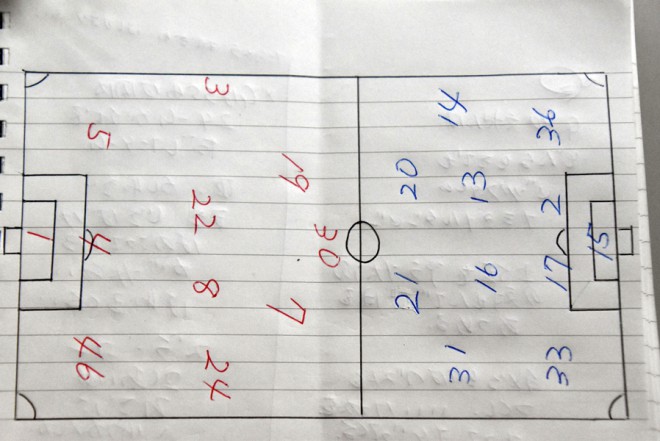 1
5
4
46
3
22
8
24
19
7
30
20
21
14
13
16
31
36
2
17
33
15